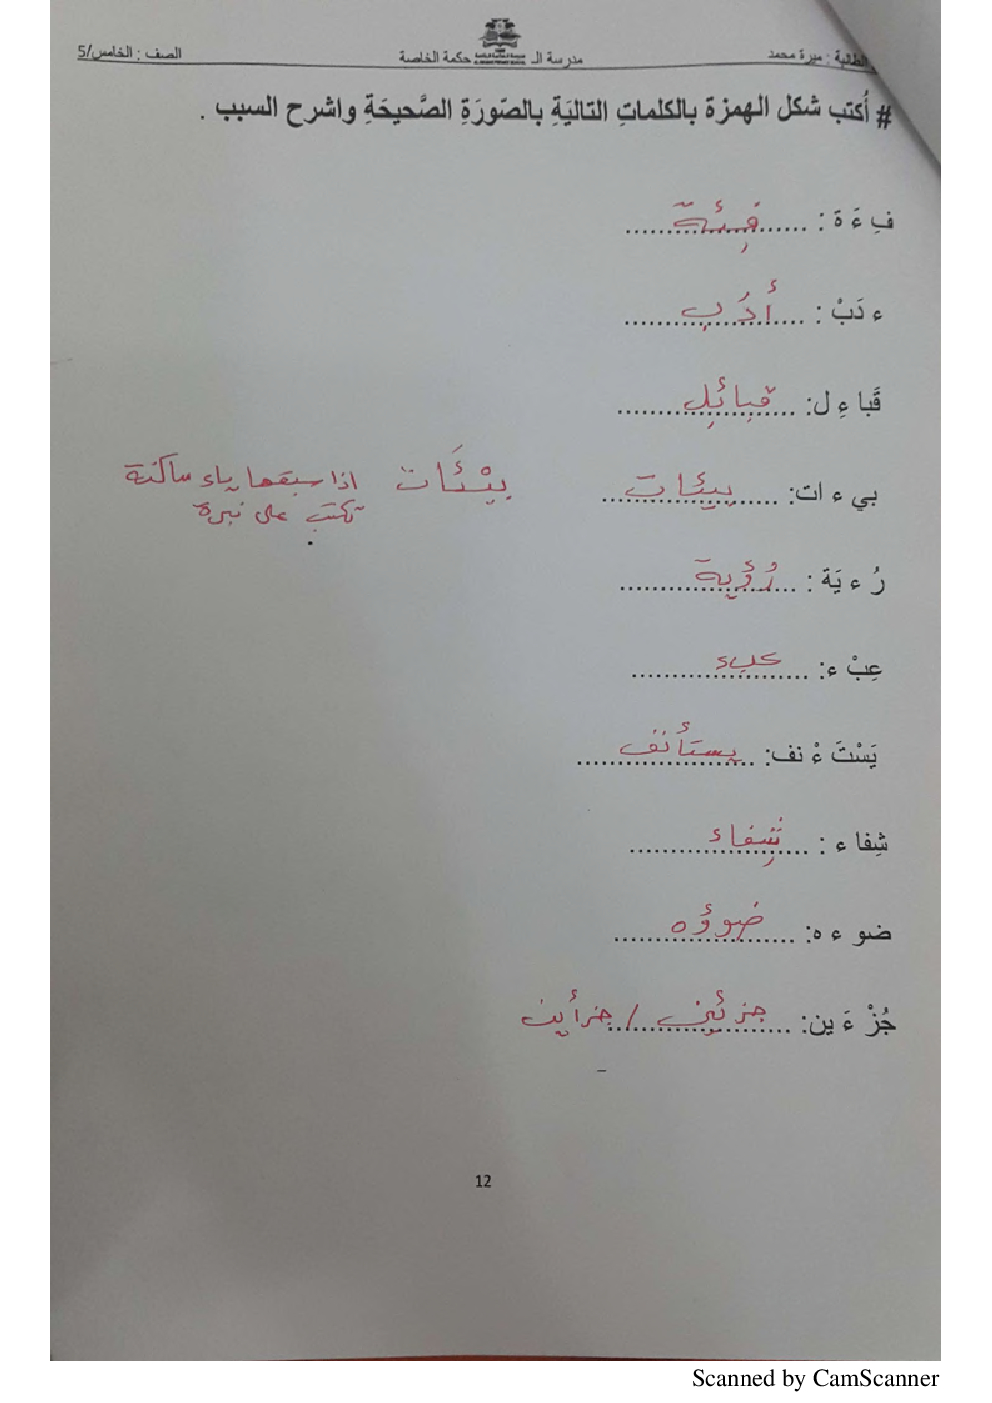 الطالبة : ميرة محمد مدرسة الـ حكمة الخاصة الصف : الخامس/5
# أُكتب شكل الهمزة بالكلماتِ التاليَةِ بالصّورَةِ الصَّحيحَةِ واشرح السبب .
فِ ءَ ة : فِئة
ء دَبْ : أُدُب
قَبا ءِ ل: قبائِل
بي ء ات: بيئات بيْئَات اذا سبقها ياء ساكنة
تكتب على نبرة
رُ ء يَة : رُؤية
عِبْ ء: عبء
يَسْتَ ءْ نف: يستأنف
شِفا ء : شِفاء
ضو ء ه: ضوؤه
جُزْ ءَ ين: جزئين / جزأين
12
Scanned by CamScanner